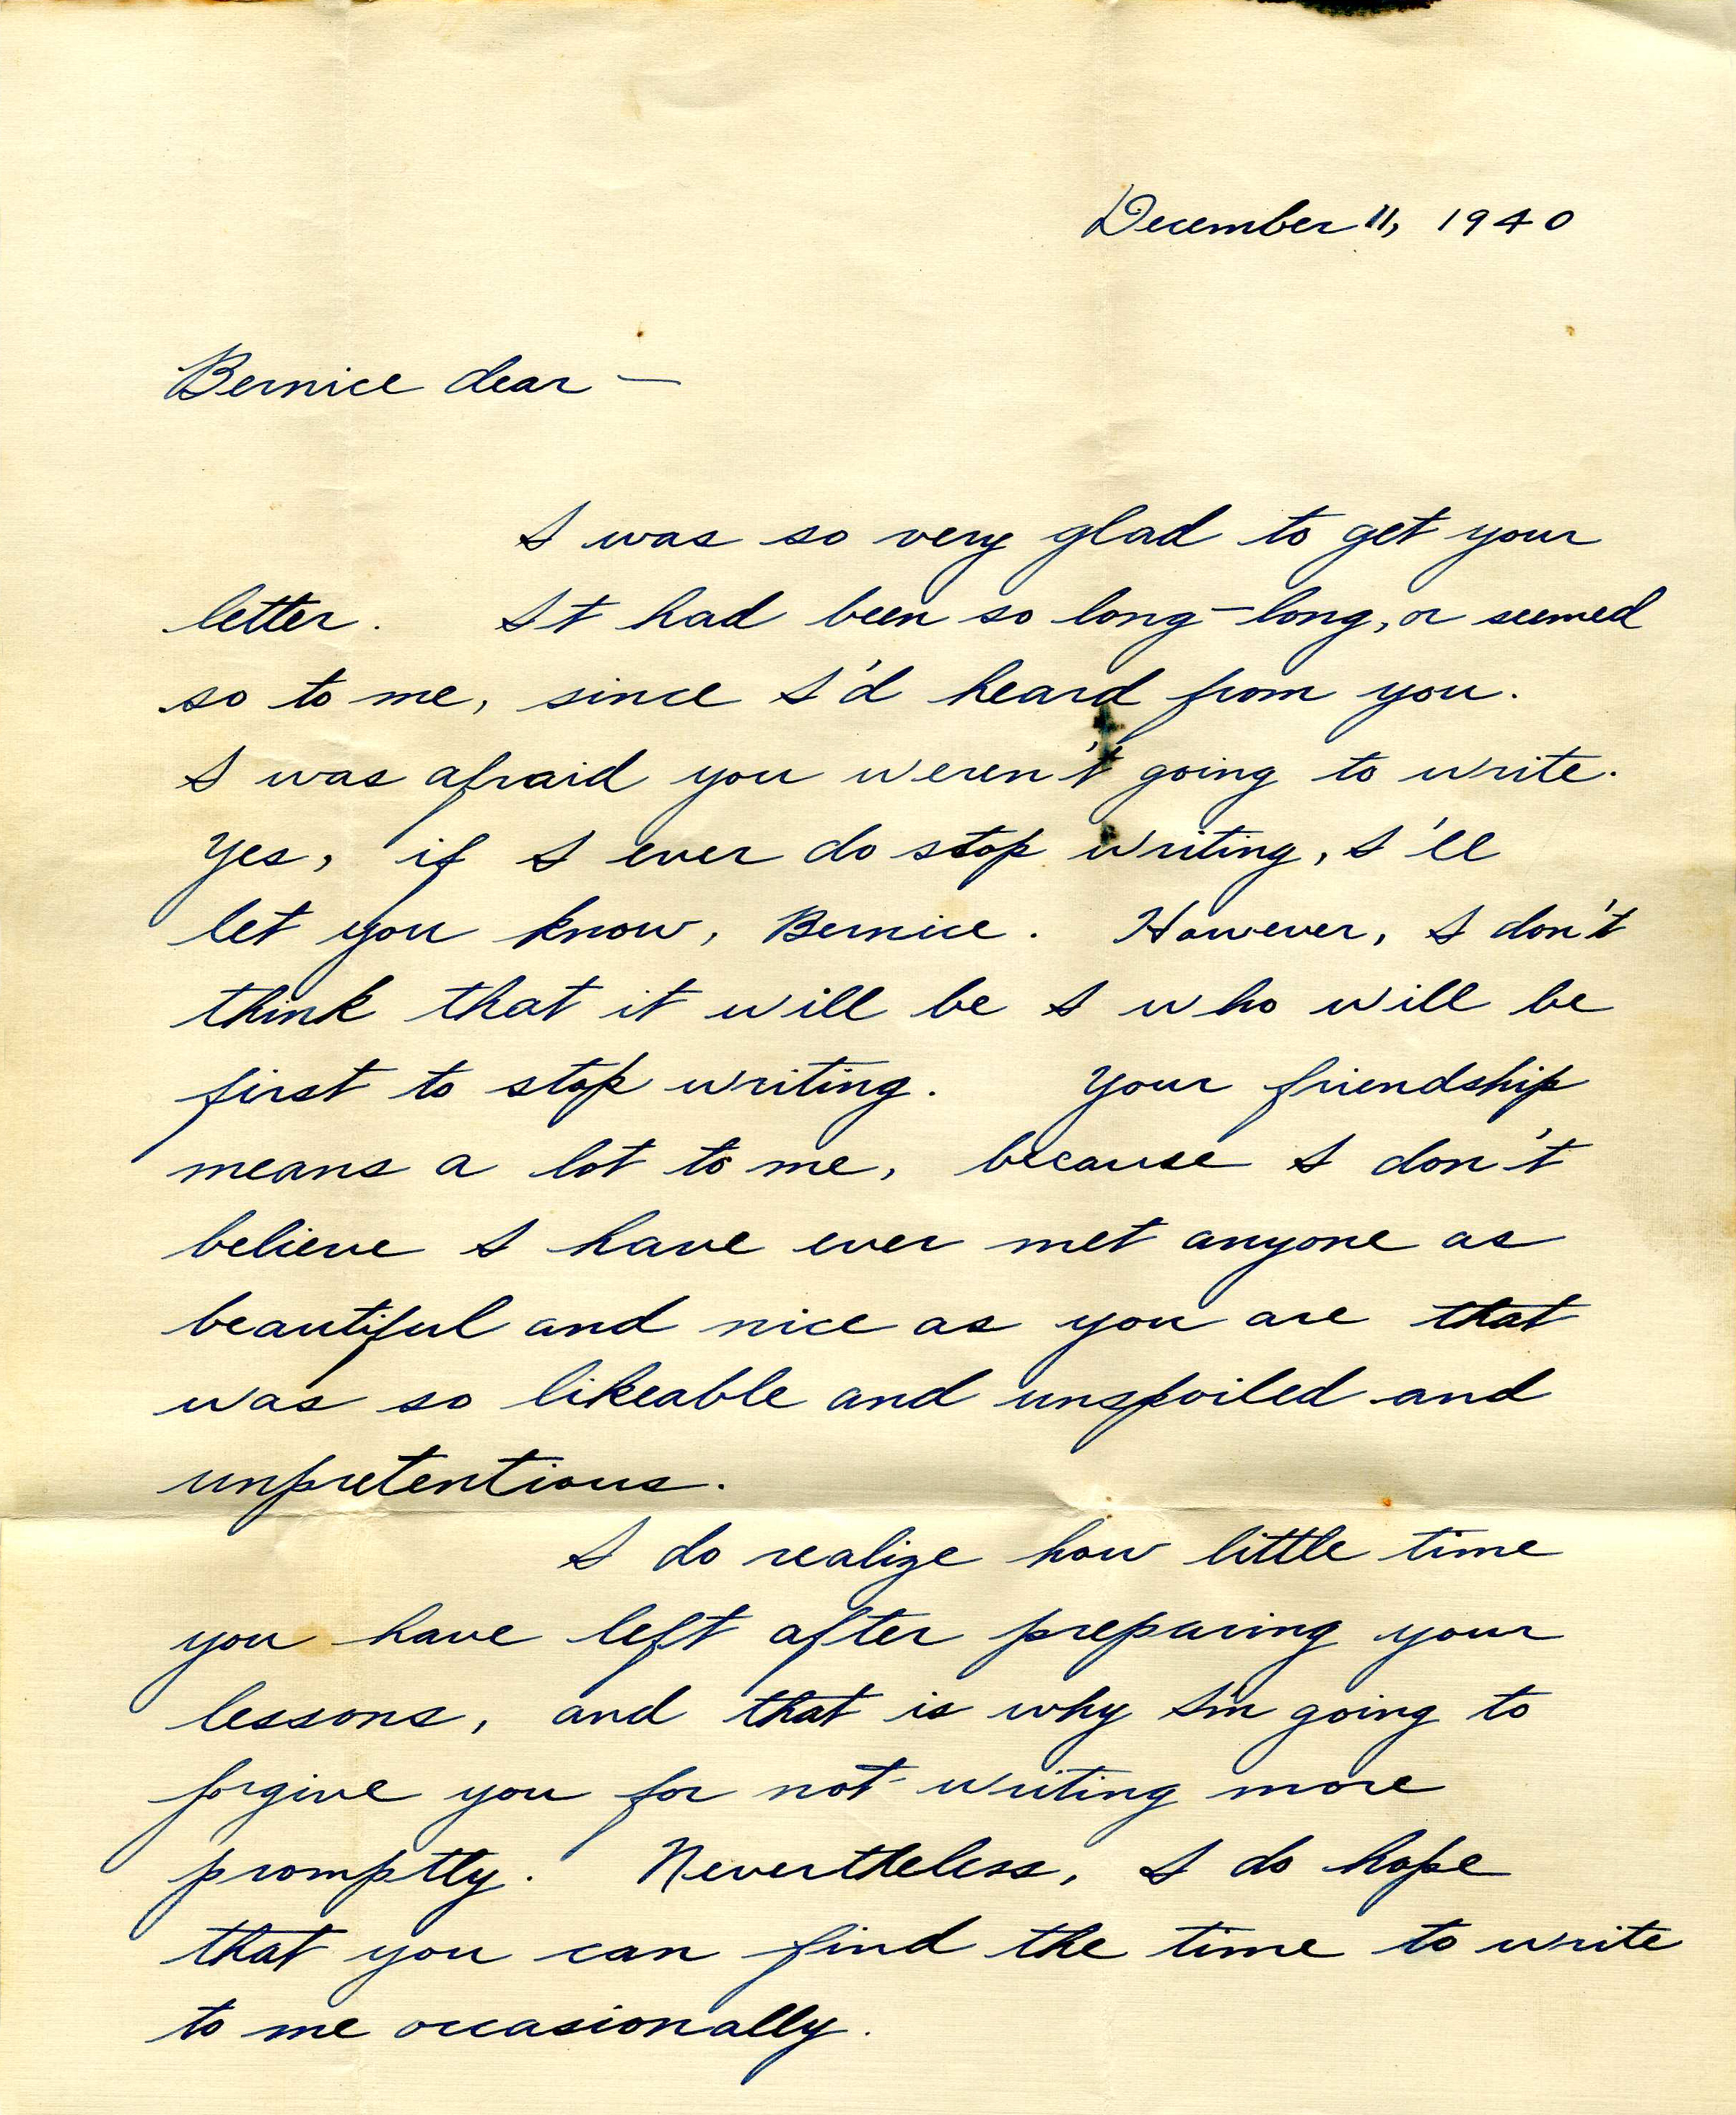 December 11, 1940
Bernice dear —
I was so very glad to get your
letter. It had been so long-long, or seemed
so to me, since I'd heard from you.
I was afraid you weren't going to write.
Yes, if I ever do stop writing, I'll
let you know, Bernice. However, I don't
think that it will be I who will be
first to stop writing. Your friendship
means a lot to me, because I don't
believe I have ever met anyone as
beautiful and nice as you are that
was so likeable and unspoiled and
unpretentious.
I do realize how little time
you have left after preparing your
lessons, and that is why I'm going to
forgive you for not writing more
promptly. Nevertheless, I do hope
that you can find the time to write
to me occasionally.